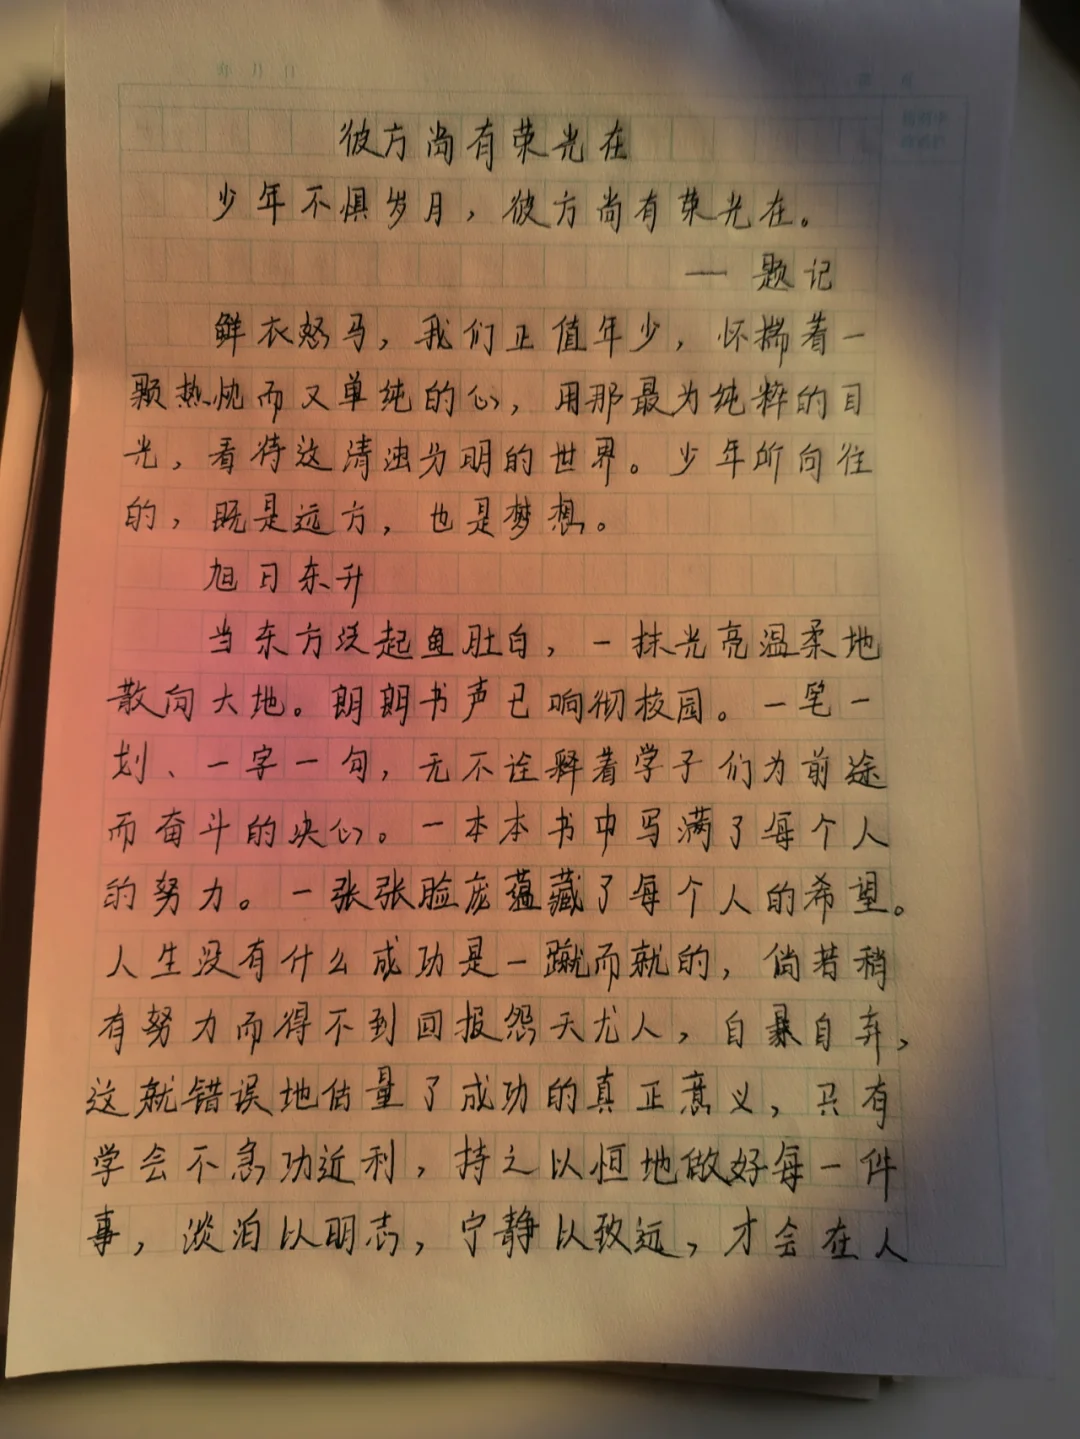 年 月 日
彼方尚有荣光在
少年不惧岁月，彼方尚有荣光在。
— 题记
鲜衣怒马，我们正值年少，怀揣着一
颗热忱而又单纯的心，用那最为纯粹的目
光，看待这清浊分明的世界。少年所向往
的，既是远方，也是梦想。
旭日东升
当东方泛起鱼肚白，一抹光亮温柔地
散向大地。朗朗书声已响彻校园。一笔一
划、一字一句，无不诠释着学子们为前途
而奋斗的决心。一本本书中写满了每个人
的努力。一张张脸庞蕴藏了每个人的希望。
人生没有什么成功是一蹴而就的，倘若稍
有努力而得不到回报怨天尤人，自暴自弃，
这就错误地估量了成功的真正意义，只有
学会不急功近利，持之以恒地做好每一件
事，淡泊以明志，宁静以致远，才会在人